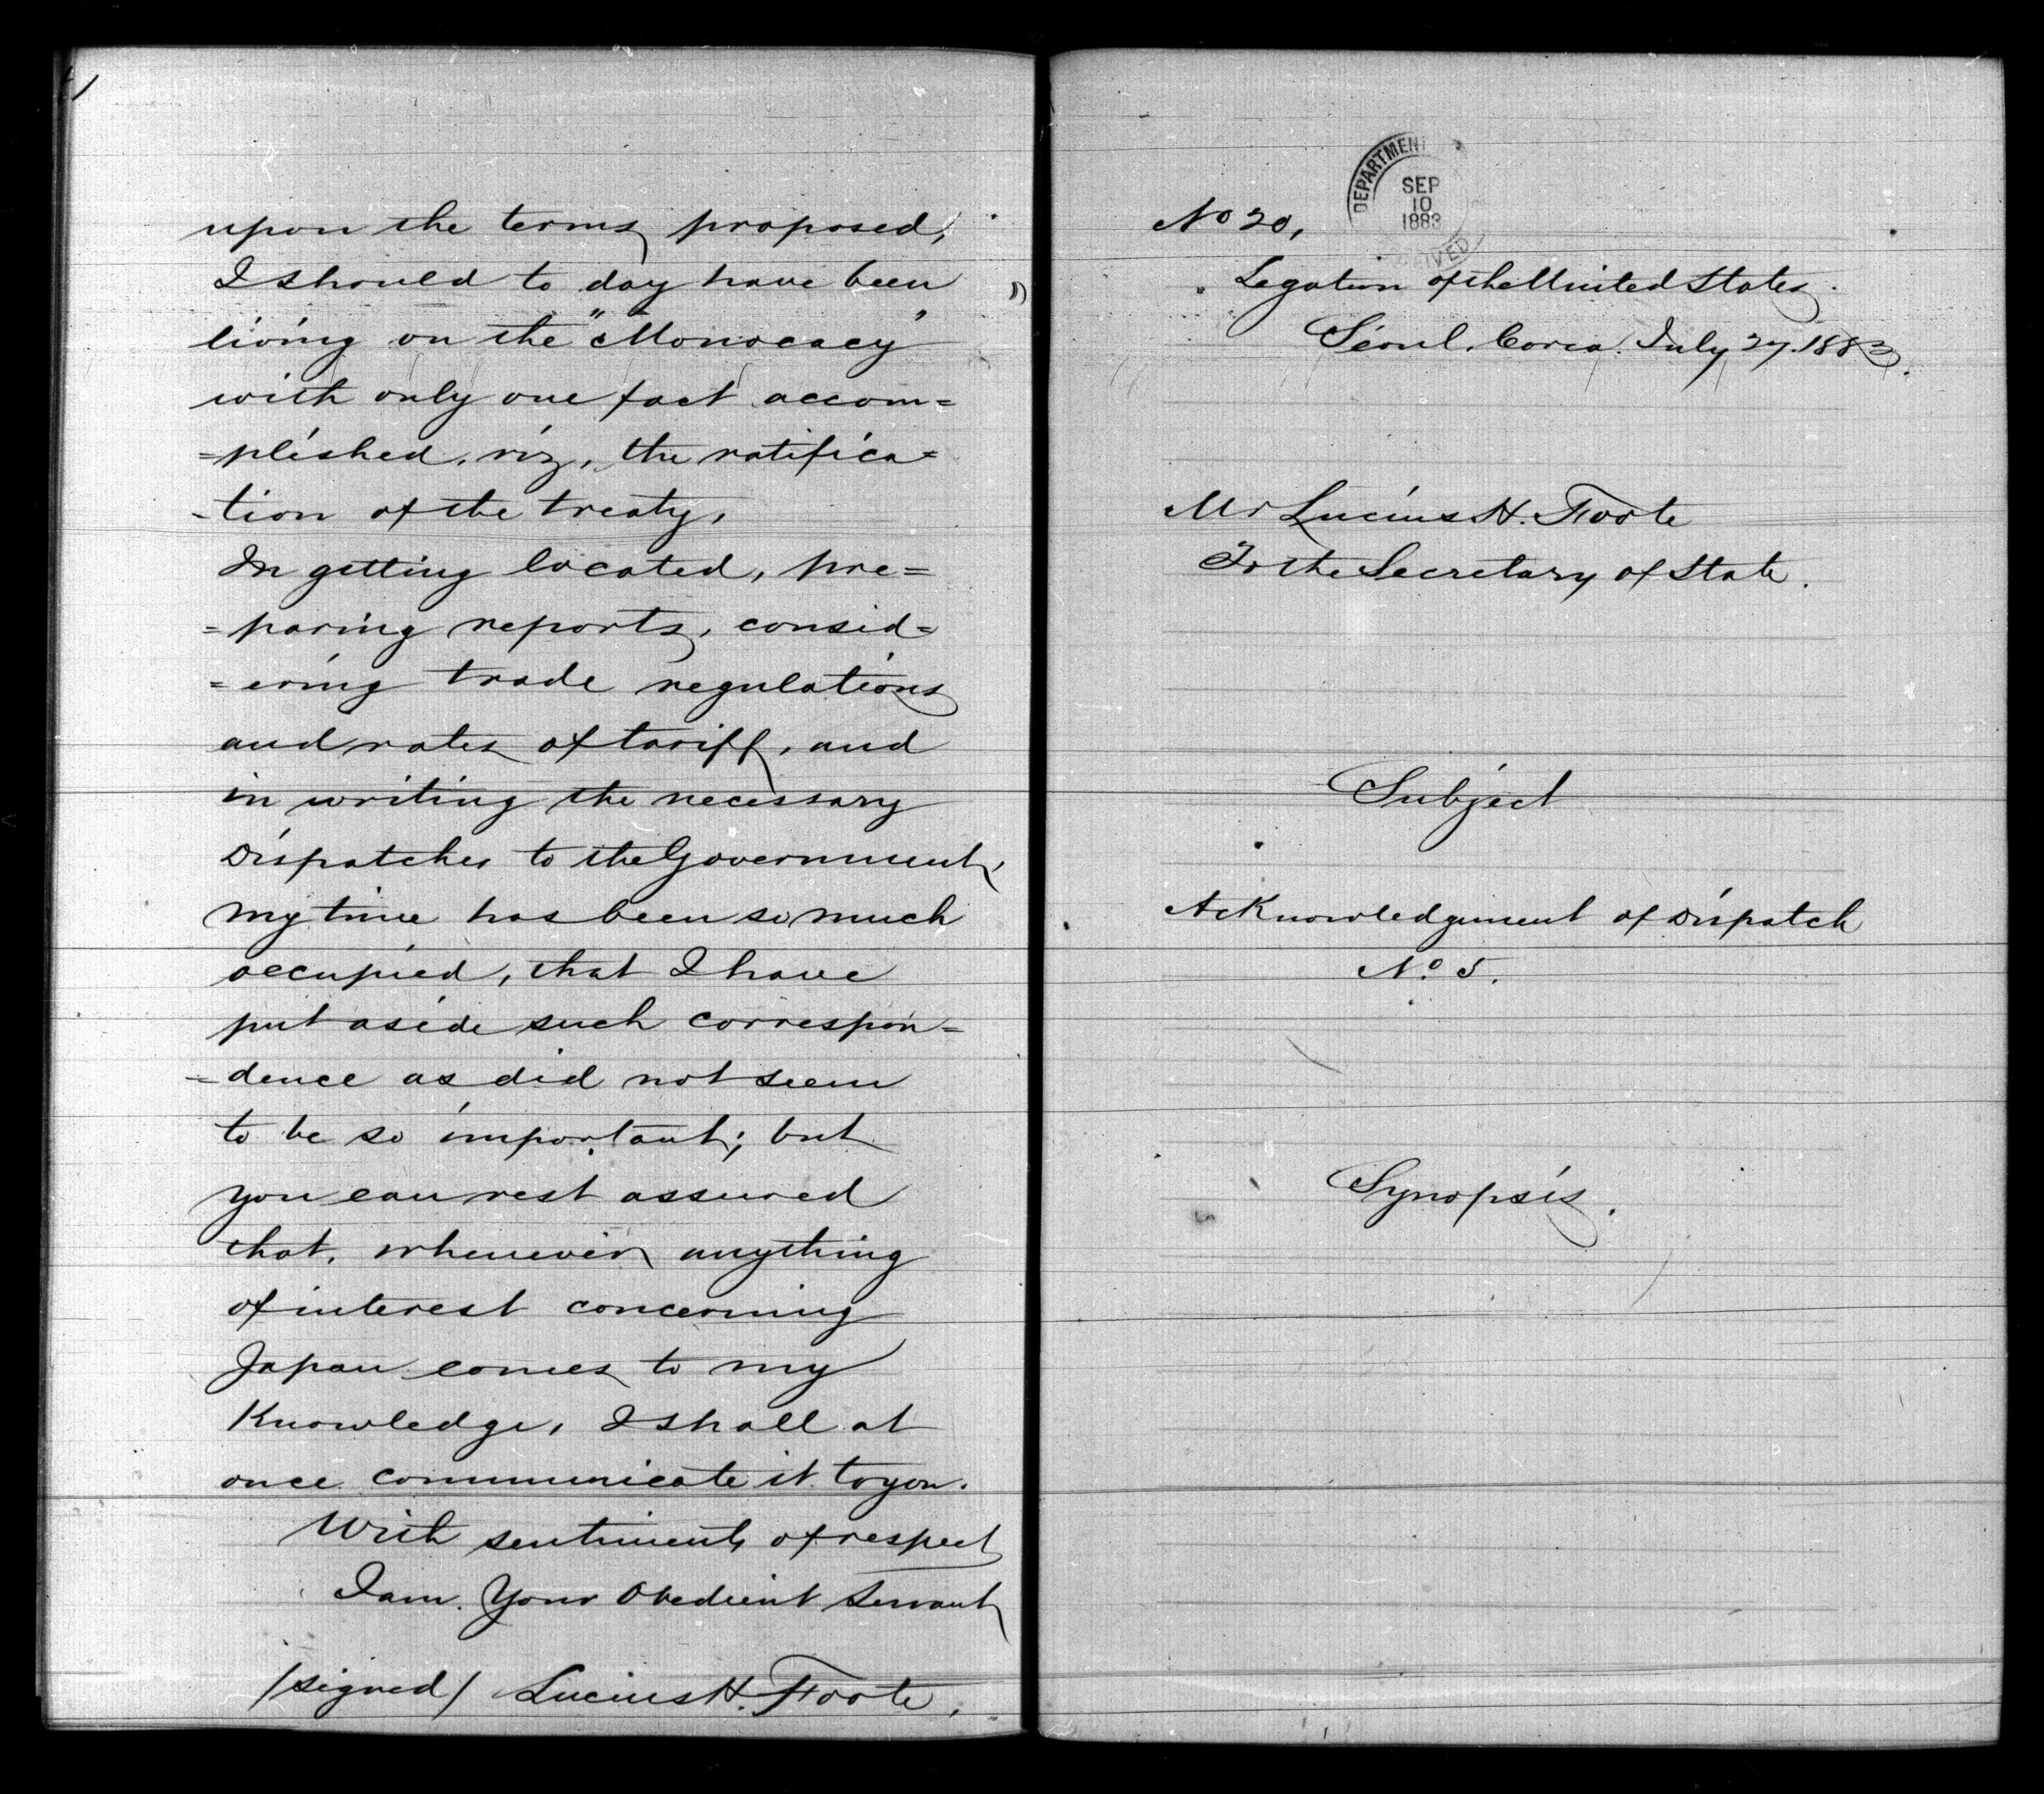 upon the terms proposed,
I should to day have been
living on the "Monocacy"
with only one fact accom=
=plished, viz, the ratifica=
-tion of the treaty,
In getting located, pre=
=paring reports, consid=
=ering trade regulations
and rates of tariff, and
in writing the necessary
Dispatches to the Government,
my time has been so much
occupied, that I have
put aside such correspon=
=dence as did not seem
to be so important; but
you can rest assured
that, whenever anything
of interest concerning
Japan comes to my
Knowledge, I shall at
once communicate it to you.
With sentiments of respect
I am. Your Obedient Servant
/signed/ Lucius H. Foote,
DEPARTMENT
SEP
10
1883
No 20,
Legation of the United States.
Séoul, Corea. July 27. 1883.
Mr Lucius H. Foote
To the Secretary of State.
Subject
Acknowledgement of Dispatch
No. 5.
Synopsis.